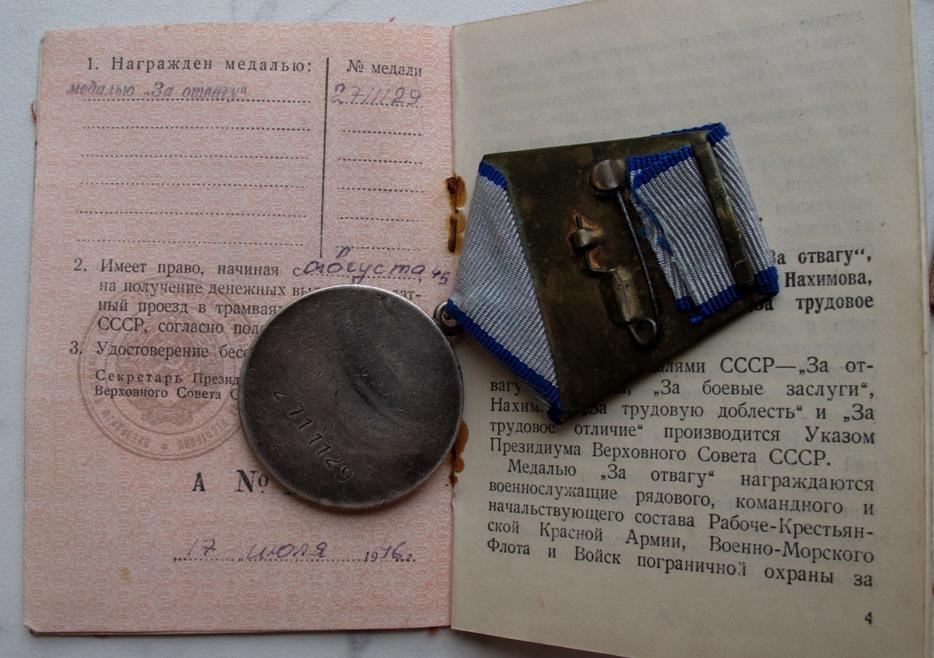 1. Награжден медалью:
№ медали
медалью „За отвагу“
2711129
2. Имеет право, начиная с августа 45
на получение денежных
ный проезд в трамвая
СССР, согласно
3. Удостоверение
Секретарь
Верховного Совета
А №
17 июля 1946г.
За отвагу“,
Нахимова,
трудовое
СССР—„За от-
вагу
„За боевые заслуги“,
„За трудовую доблесть“ и „За
трудовое отличие“ производится Указом
Президиума Верховного Совета СССР.
Медалью „За отвагу“ награждаются
военнослужащие рядового, командного и
начальствующего состава Рабоче-Крестьян-
ской Красной Армии, Военно-Морского
Флота и Войск пограничной охраны за
4
2711129